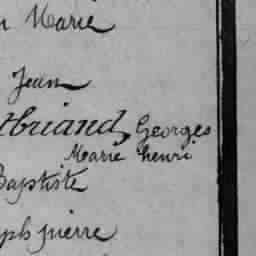 n Marie
Jean
tbriand, Georges
Marie henri
Baptiste
eph pierre